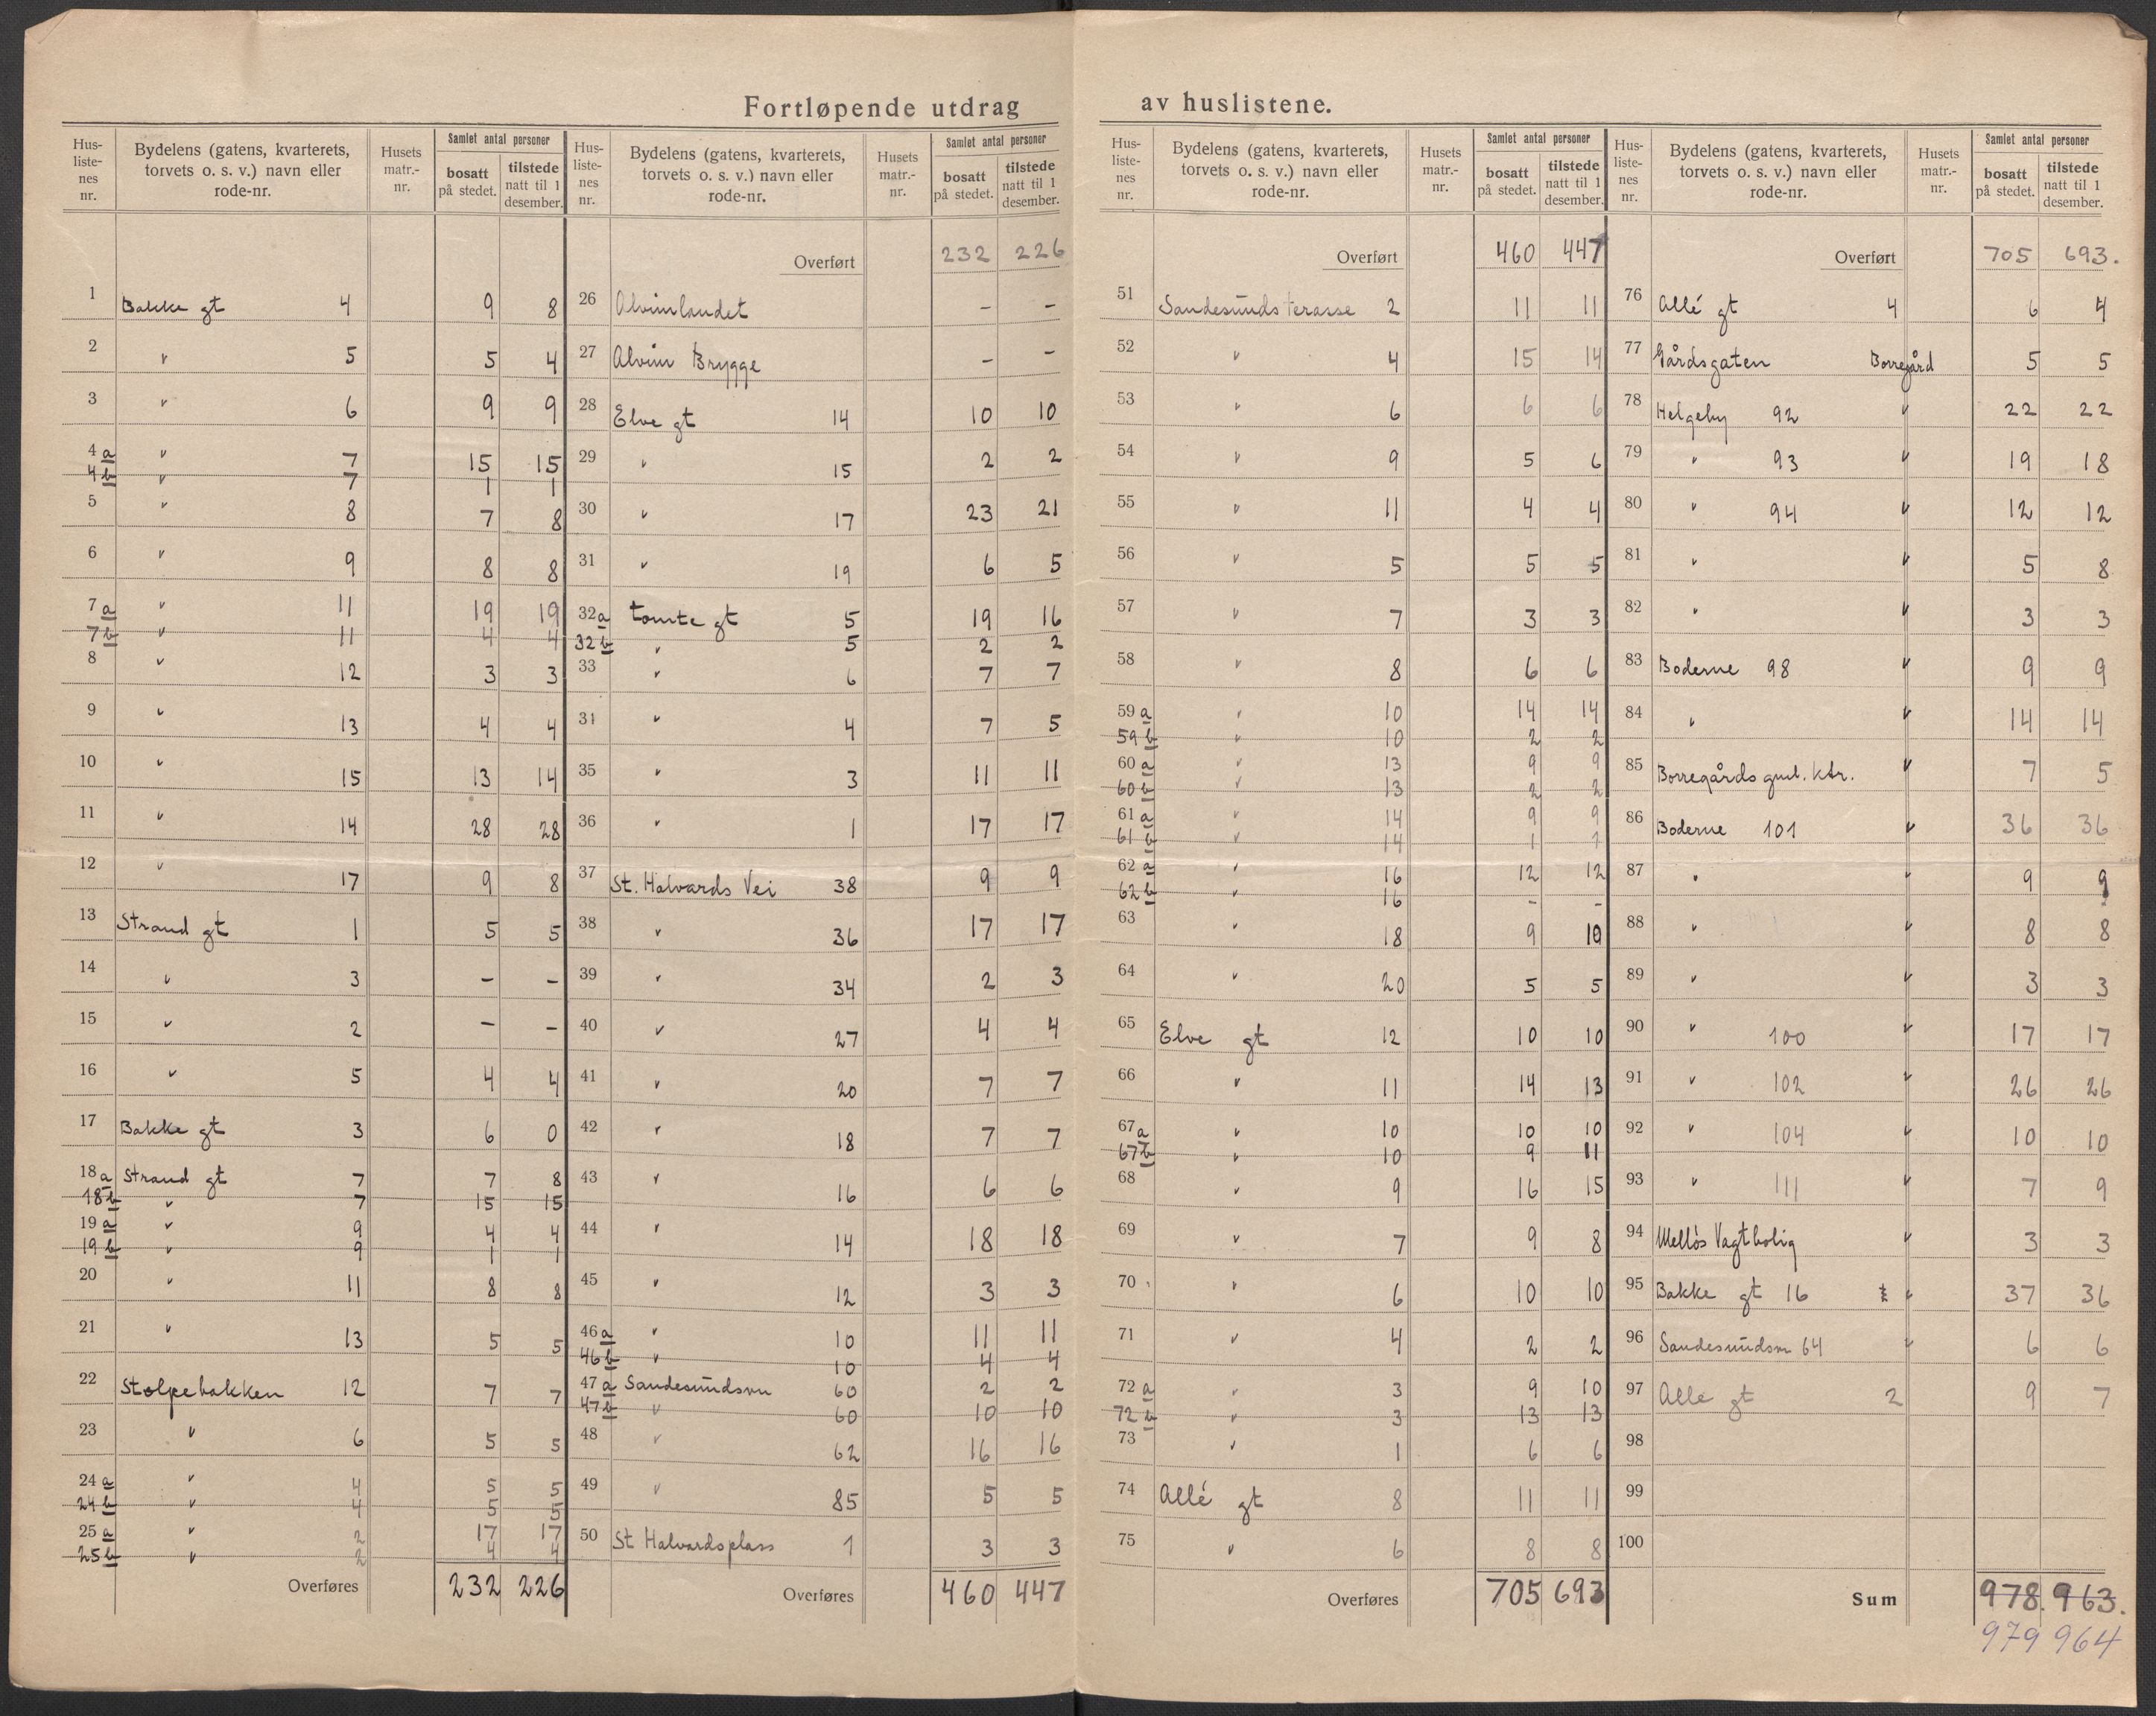 Fortløpende utdrag av huslistene.
Hus-liste-nes nr. Bydelens (gatens, kvarterets, torvets o. s. v.) navn eller rode-nr. Husets matr.-nr. Samlet antal personer bosatt på stedet. tilstede natt til 1 desember.
1 Bakke gt 4 9 8
2 " 5 5 4
3 " 6 9 9
4a " 7 15 15
4b " 7 1 1
5 " 8 7 8
6 " 9 8 8
7a " 11 19 19
7b " 11 4 4
8 " 12 3 3
9 " 13 4 4
10 " 15 13 14
11 " 14 28 28
12 " 17 9 8
13 Strand gt 1 5 5
14 " 3 - -
15 " 2 - -
16 " 5 4 4
17 Bakke gt 3 6 0
18a Strand gt 7 7 8
18b " 7 15 15
19a " 9 4 4
19b " 9 1 1
20 " 11 8 8
21 " 13 5 5
22 Stolpebakken 12 7 7
23 " 6 5 5
24a " 4 5 5
24b " 4 5 5
25a " 2 17 17
25b " 2 4 4
Overføres 232 226
Hus-liste-nes nr. Bydelens (gatens, kvarterets, torvets o. s. v.) navn eller rode-nr. Husets matr.-nr. Samlet antal personer bosatt på stedet. tilstede natt til 1 desember.
Overført 232 226
26 Alvimlandet - -
27 Alvim Brygge - -
28 Elve gt 14 10 10
29 " 15 2 2
30 " 17 23 21
31 " 19 6 5
32a Tomte gt 5 19 16
32b " 5 2 2
33 " 6 7 7
34 " 4 7 5
35 " 3 11 11
36 " 1 17 17
37 St. Halvards Vei 38 9 9
38 " 36 17 17
39 " 34 2 3
40 " 27 4 4
41 " 20 7 7
42 " 18 7 7
43 " 16 6 6
44 " 14 18 18
45 " 12 3 3
46a " 10 11 11
46b " 10 4 4
47a Sandesundsvn 60 2 2
47b " 60 10 10
48 " 62 16 16
49 " 85 5 5
50 St Halvardsplass 1 3 3
Overføres 460 447
Hus-liste-nes nr. Bydelens (gatens, kvarterets, torvets o. s. v.) navn eller rode-nr. Husets matr.-nr. Samlet antal personer bosatt på stedet. tilstede natt til 1 desember.
Overført 460 447
51 Sandesunds terasse 2 11 11
52 " 4 15 14
53 " 6 6 6
54 " 9 5 6
55 " 11 4 4
56 " 5 5 5
57 " 7 3 3
58 " 8 6 6
59a " 10 14 14
59b " 10 2 2
60a " 13 9 9
60b " 13 2 2
61a " 14 9 9
61b " 14 1 1
62a " 16 12 12
62b " 16 - -
63 " 18 9 10
64 " 20 5 5
65 Elve gt 12 10 10
66 " 11 14 13
67a " 10 10 10
67b " 10 9 11
68 " 9 16 15
69 " 7 9 8
70 " 6 10 10
71 " 4 2 2
72a " 3 9 10
72b " 3 13 13
73 " 1 6 6
74 Allé gt 8 11 11
75 " 6 8 8
Overføres 705 693
Hus-liste-nes nr. Bydelens (gatens, kvarterets, torvets o. s. v.) navn eller rode-nr. Husets matr.-nr. Samlet antal personer bosatt på stedet. tilstede natt til 1 desember.
Overført 705 693.
76 Allé gt 4 6 4
77 Gårdsgaten Borregård 5 5
78 Helgeby 92 " 22 22
79 " 93 " 19 18
80 " 94 " 12 12
81 " " 5 8
82 " " 3 3
83 Boderne 98 " 9 9
84 " " 14 14
85 Borregårds gml. ktr. " 7 5
86 Boderne 101 " 36 36
87 " " 9 9
88 " " 8 8
89 " " 3 3
90 " 100 " 17 17
91 " 102 " 26 26
92 " 104 " 10 10
93 " 111 " 7 9
94 Melløs Vagtbolig " 3 3
95 Bakke gt 16 " 37 36
96 Sandesundsvn 64 " 6 6
97 Alle gt 2 9 7
98
99
100
Sum 978. 963.
979 964